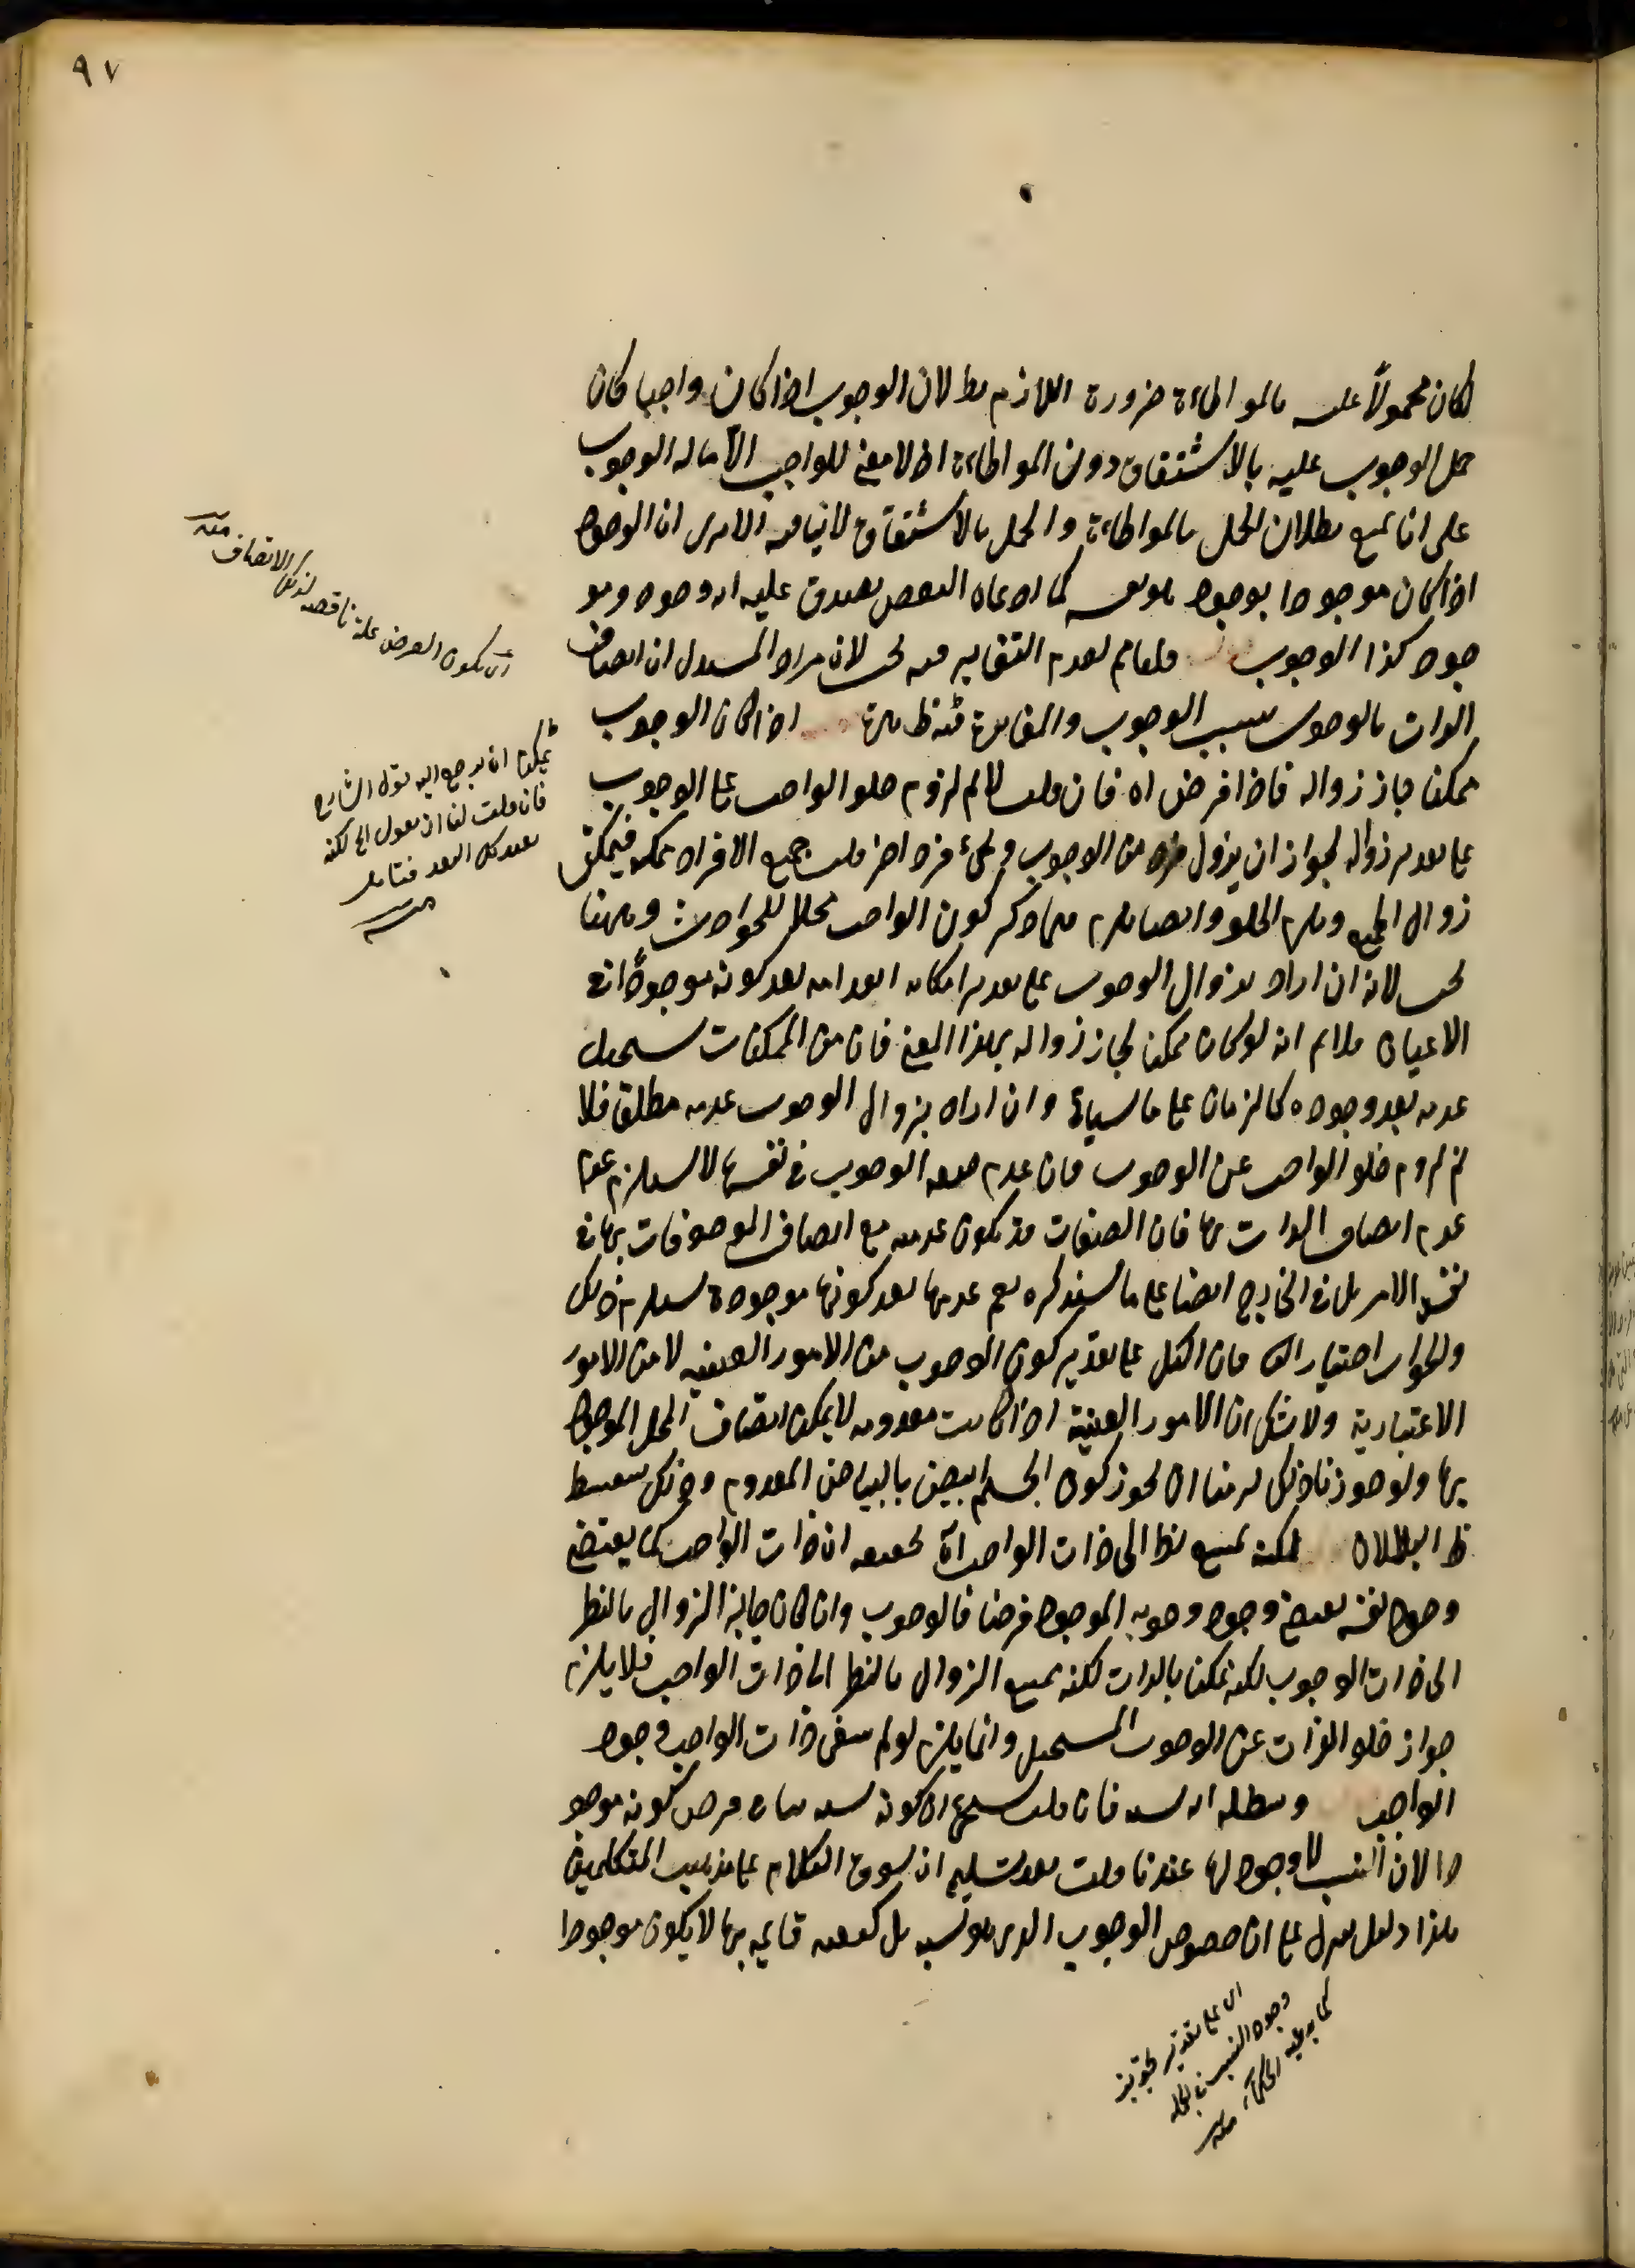 ٩٧
لكان محمولاً عليه بالمواطاءة ضرورة اللازم بطلان الوجوب اذا كان واجبا كان
حمل الوجوب عليه بالاشتقاق دون المواطاءة اذ لا معنى للواجب الا ما له الوجوب
على انا نمنع بطلان الحمل بالمواطاءة والحمل بالاشتقاق لا ينافيه الا يرى ان الوجود
اذا كان موجودا بوجود هو نفسه كما ادعاه البعض يصدق عليه انه وجود ومو
جود كذا الوجوب قلعدم التغاير فيه بحث لان مراد المستدل ان اتصاف
الذات بالوجوب بسبب الوجوب والمغايرة فيه ظاهرة اذا كان الوجوب
ممكنا جاز زواله فاذا فرض اه فان قلت لا نم لزوم خلو الواجب عن الوجوب
على تقدير زواله لجواز ان يزول فرد من الوجوب ويجئ فرد اخر قلت جميع الافراد ممكنه فيمكن
زوال الجميع ويلزم الخلو وايضا يلزم مما ذكر كون الواجب محلا للحوادث وههنا
بحث لانه ان اراد بزوال الوجوب على تقدير امكانه انعدامه بعد كونه موجودا في
الاعيان فلا نم انه لو كان ممكنا لجاز زواله بهذا المعنى فان من الممكنات يستحيل
عدمه بعد وجوده كالزمان على ما سياتي وان اراد بزوال الوجوب عدمه مطلقا فلا
نم لزوم خلو الواجب عن الوجوب فان عدم صفه الوجوب في نفسها لا يستلزم عدم
عدم اتصاف الذات بها فان الصفات قد تكون عدميه مع اتصاف الموصوفات بها في
نفس الامر بل في الخارج ايضا على ما سنذكره نعم عدمها بعد كونها موجودة يستلزم ذلك
والجواب اختيار الثانى فان الكلام على تقدير كون الوجوب من الامور العينيه لا من الامور
الاعتبارية ولا شك ان الامور العينية اذا كانت معدومه لا يمكن اتصاف المحل الموجود
بها ولو جوزنا ذلك لزمنا ان نجوز كون الجسم ابيض بالبياض المعدوم وذلك سفسطه
ظ البطلان لكنه يمتنع نظرا الى ذات الواجب اه تحقيقه ان ذات الواجب كما يقتضي
وجود نفسه يقتضي وجود وجوبه الموجود فرضا فالوجوب وان كان جايز الزوال بالنظر
الى ذات الوجوب لكونه ممكنا بالذات لكنه يمتنع الزوال بالنظر الى ذات الواجب فلا يلزم
جواز خلو الذات عن الوجوب المستحيل وانما يلزم لو لم يقتض ذات الواجب وجود
الواجب ويبطله انه نسبه فان قلت كونه نسبه ينافي فرض كونه موجو
دا لان النسب لا وجود لها عندنا قلت بعد تسليم ان سوق الكلام على مذهب المتكلمين
هذا دليل يدل على ان خصوص الوجوب الذي هو نسبه بل كيفيه قايمه بها لا يكون موجودا
اى يكون العرض علة ناقصه لذلك الاتصاف منه
يمكن ان يرجع اليه قول الشارح
فان قلت لنا ان نقول الخ لكنه
بعيد كل البعد فتامل
منه
اى على تقدير تجويز
وجود النسب في الجملة
كما يدعيه الحكماء منه